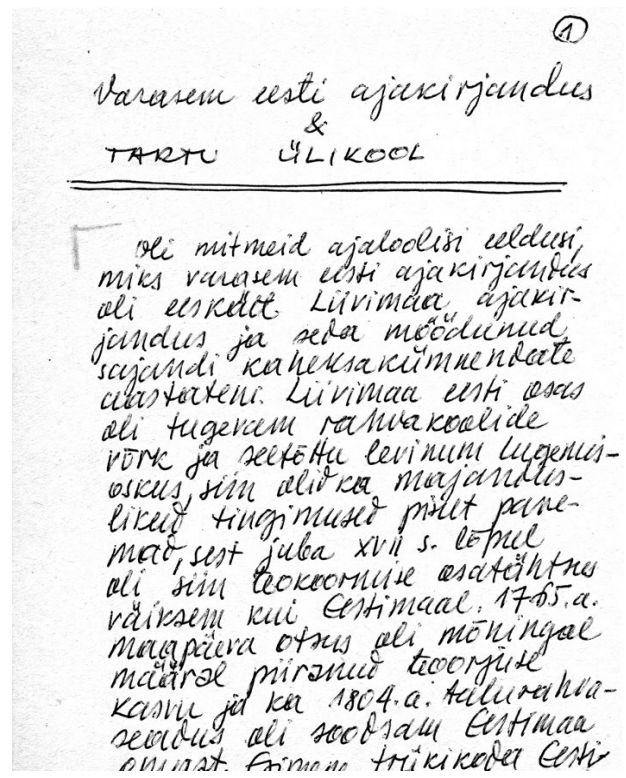 1
Varasem eesti ajakirjandus
&
TARTU ÜLIKOOL
Oli mitmeid ajaloolisi eeldusi,
miks varasem eesti ajakirjandus
oli eeskätt Liivimaa ajakir-
jandus ja seda möödunud
sajandi kaheksakümnendate
aastateni. Liivimaa eesti osas
oli tugevam rahvakoolide
võrk ja seetõttu levinum lugemis-
oskus, siin olid ka majandus-
likud tingimused pisut pare-
mad, sest juba XVII s. lõpul
oli siin teokoormise osatähtsus
väiksem kui Eestimaal. 1765.a.
maapäeva otsus oli mõningal
määral piiranud teoorjuse
kasvu ja ka 1804.a. talurahva-
seadus oli soodsam Eestimaa
omast. Esimene trükikoda Eesti